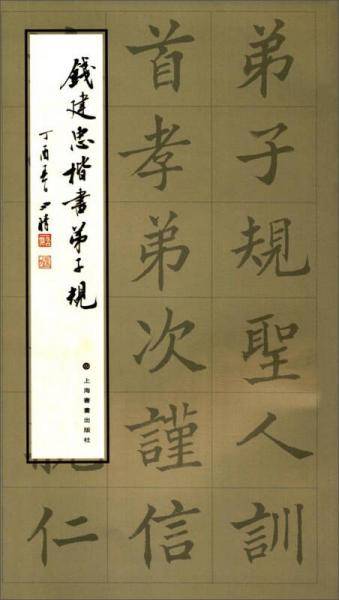 弟子規聖人訓
首孝弟次謹信
仁
錢建忠楷書弟子規
丁酉
上海書畫出版社